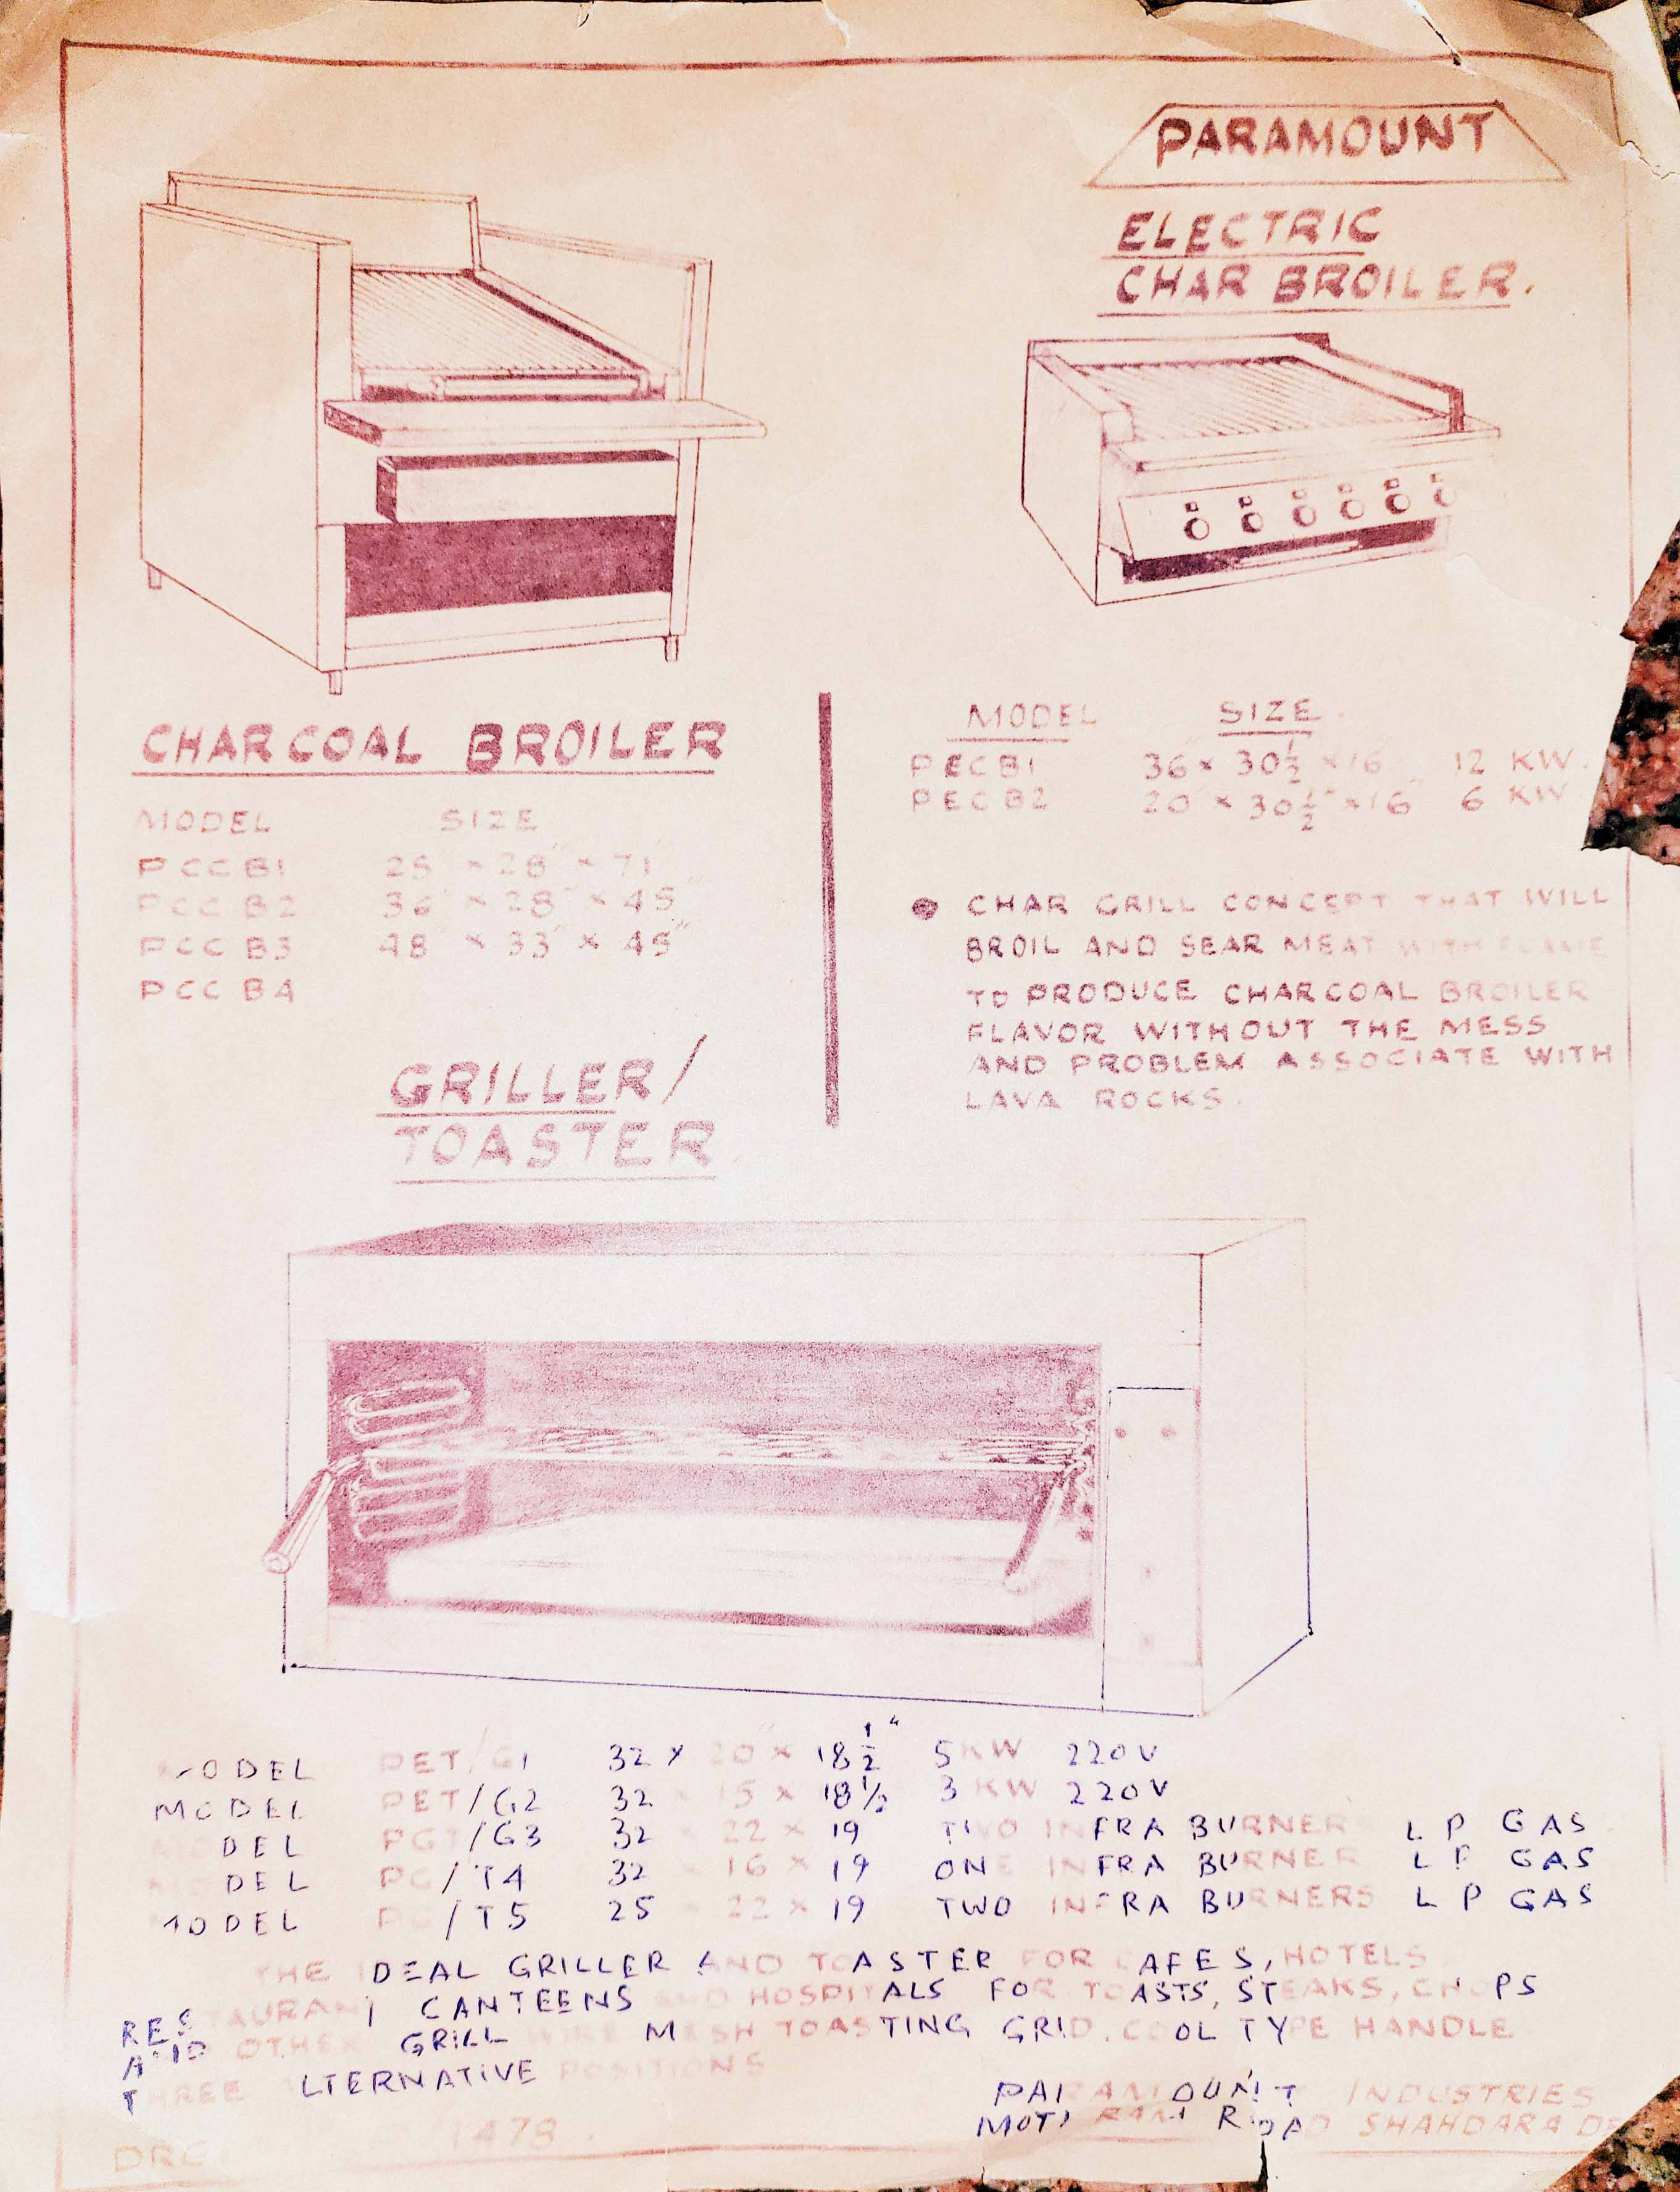 PARAMOUNT
ELECTRIC
CHAR BROILER.
CHARCOAL BROILER
MODEL SIZE
PCC B1 25" × 28" × 71"
PCC B2 36" × 28" × 45"
PCC B3 48" × 33" × 45"
PCC B4
MODEL SIZE
PECB1 36" × 30½ × 16 12 KW.
PECB2 20" × 30½" × 16" 6 KW
CHAR GRILL CONCEPT THAT WILL
BROIL AND SEAR MEAT WITH FLAME
TO PRODUCE CHARCOAL BROILER
FLAVOR WITHOUT THE MESS
AND PROBLEM ASSOCIATE WITH
LAVA ROCKS.
GRILLER/
TOASTER
MODEL PET/G1 32 × 20" × 18½" 5 KW 220V
MODEL PET/G2 32 × 15 × 18½ 3 KW 220V
MODEL /G3 32 × 22 × 19 TWO INFRA BURNERS LP GAS
MODEL PG/T4 32 × 16 × 19 ONE INFRA BURNER LP GAS
MODEL /T5 25 × 22 × 19 TWO INFRA BURNERS LP GAS
THE IDEAL GRILLER AND TOASTER FOR CAFES, HOTELS
RESTAURANT CANTEENS AND HOSPITALS FOR TOASTS, STEAKS, CHOPS
AND OTHER GRILL MESH TOASTING GRID. COOL TYPE HANDLE
THREE ALTERNATIVE POSITIONS
PARAMOUNT INDUSTRIES
MOTI RAM ROAD SHAHDARA
DRG. 1478.